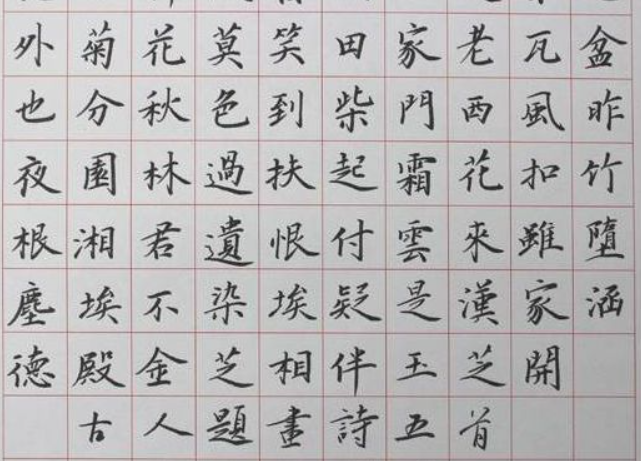 外菊花莫笑田家老瓦盆
也分秋色到柴門西風昨
夜園林過扶起霜花扣竹
根湘君遺恨付雲來雖墮
塵埃不染埃疑是漢家涵
德殿金芝相伴玉芝開
古人題畫詩五首